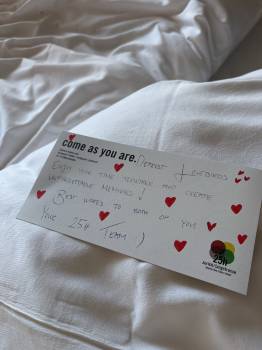 come as you are.
DEAREST LOVEBIRDS
ENJOY YOUR TIME TOGETHER AND CREATE
UNFORGETTABLE MEMORIES!
BEST WISHES TO BOTH OF YOU!
YOUR 25h TEAM :)
25h